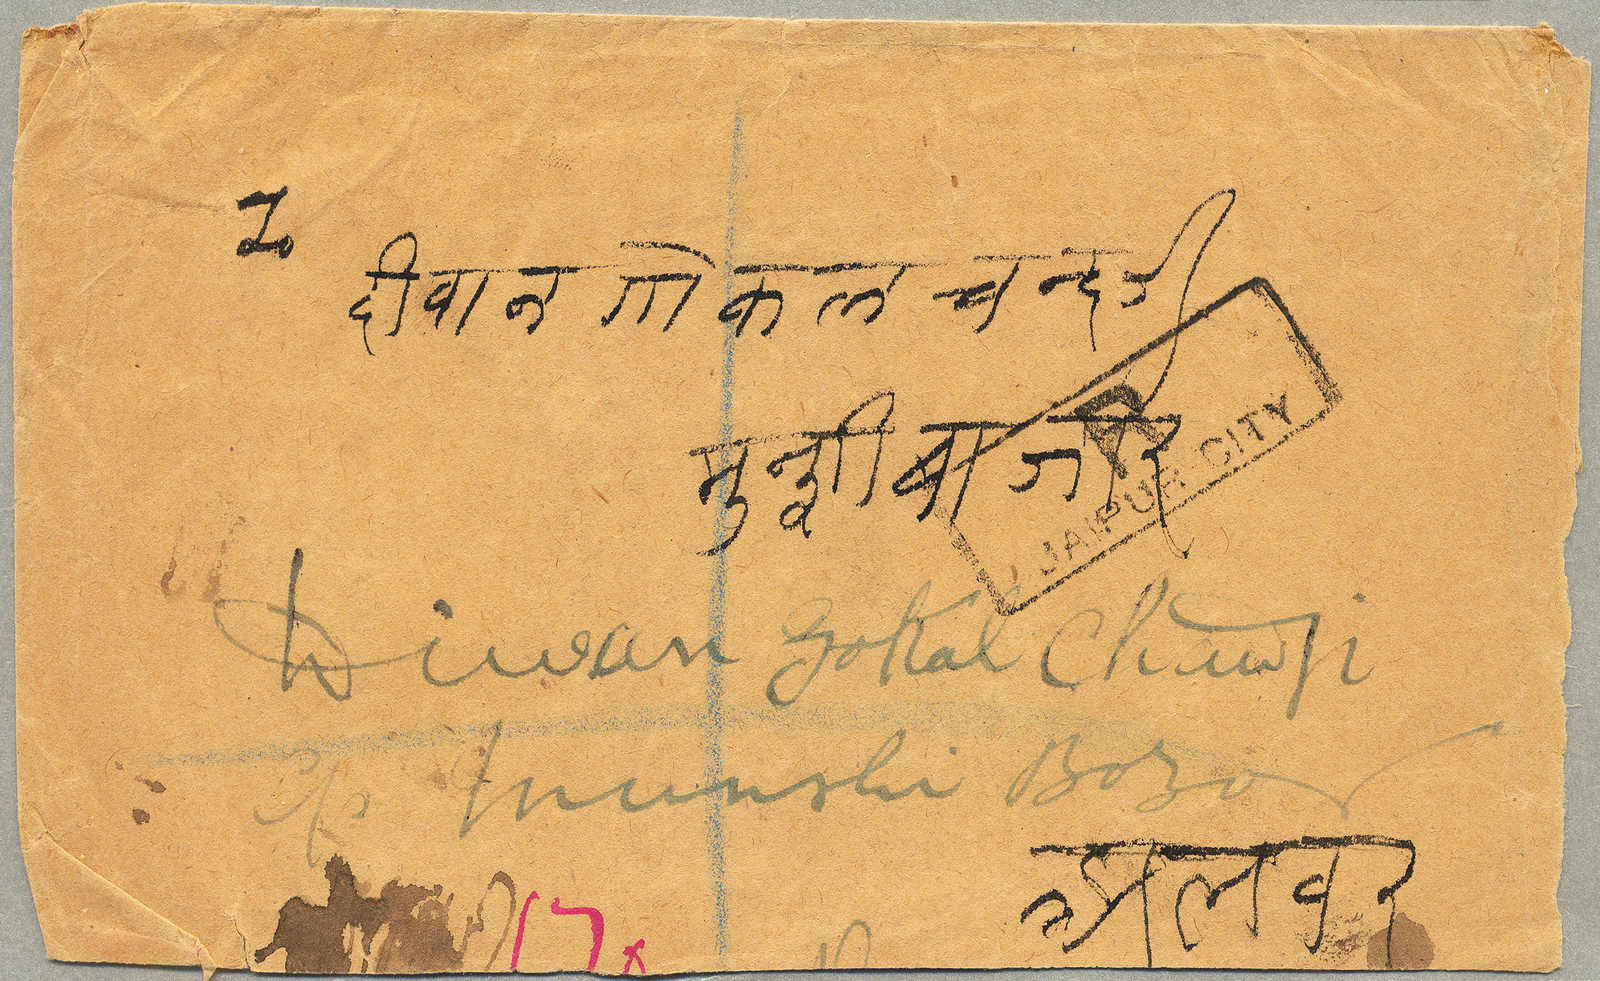 To
दीवान गोकल चन्दजी
मुन्शी बाजार
R
JAIPUR-CITY
Diwan Gokal Chandji
Munshi Bazar
अलवर